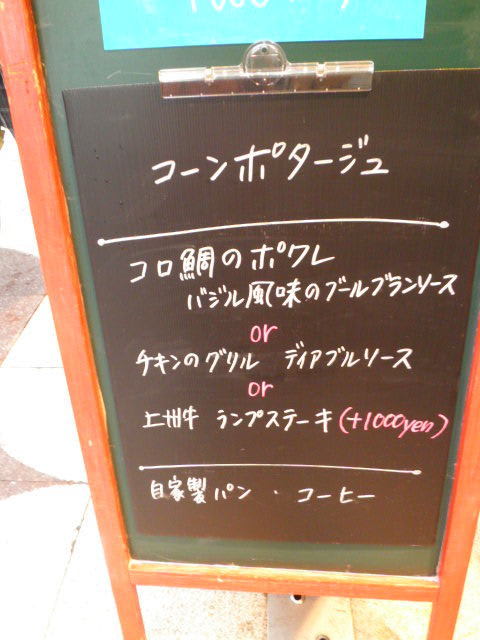 コーンポタージュ
コロ鯛のポワレ
バジル風味のブールブランソース
or
チキンのグリル ディアブルソース
or
上州牛 ランプステーキ (+1000yen)
自家製パン ・ コーヒー